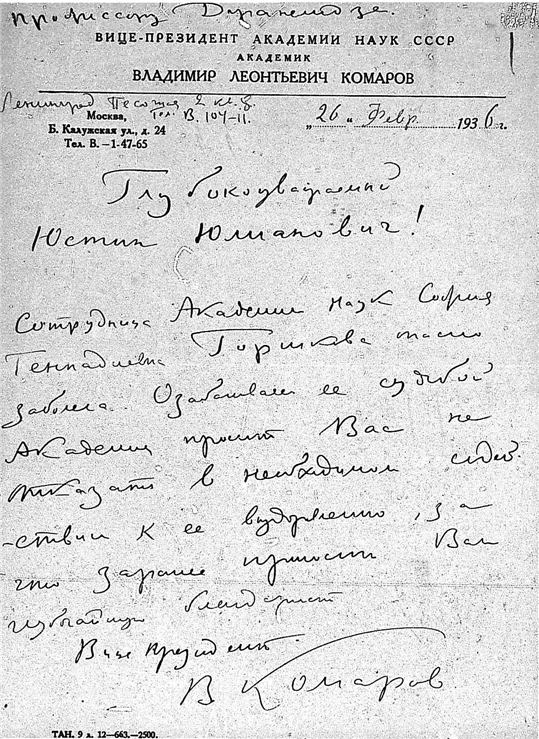 Профессору Джанелидзе.
ВИЦЕ-ПРЕЗИДЕНТ АКАДЕМИИ НАУК СССР
АКАДЕМИК
ВЛАДИМИР ЛЕОНТЬЕВИЧ КОМАРОВ
Ленинград Песочная 2 кв. 8.
Москва, Тел. В. 104-11.
Б. Калужская ул., д. 24
Тел. В. —1-47-65
„26“ Февр. 1936 г.
Глубокоуважаемый
Юстин Юлианович!
Сотрудница Академии наук София
Геннадиевна Горшкова тяжело
заболела. Озабочиваясь ее судьбой
Академия просит Вас не
отказать в необходимом содей-
-ствии к ее выздоровлению, за
что заранее приносит Вам
глубочайшую благодарность
Вице президент
В Комаров
ТАН. 9 л. 12—663.—2500.